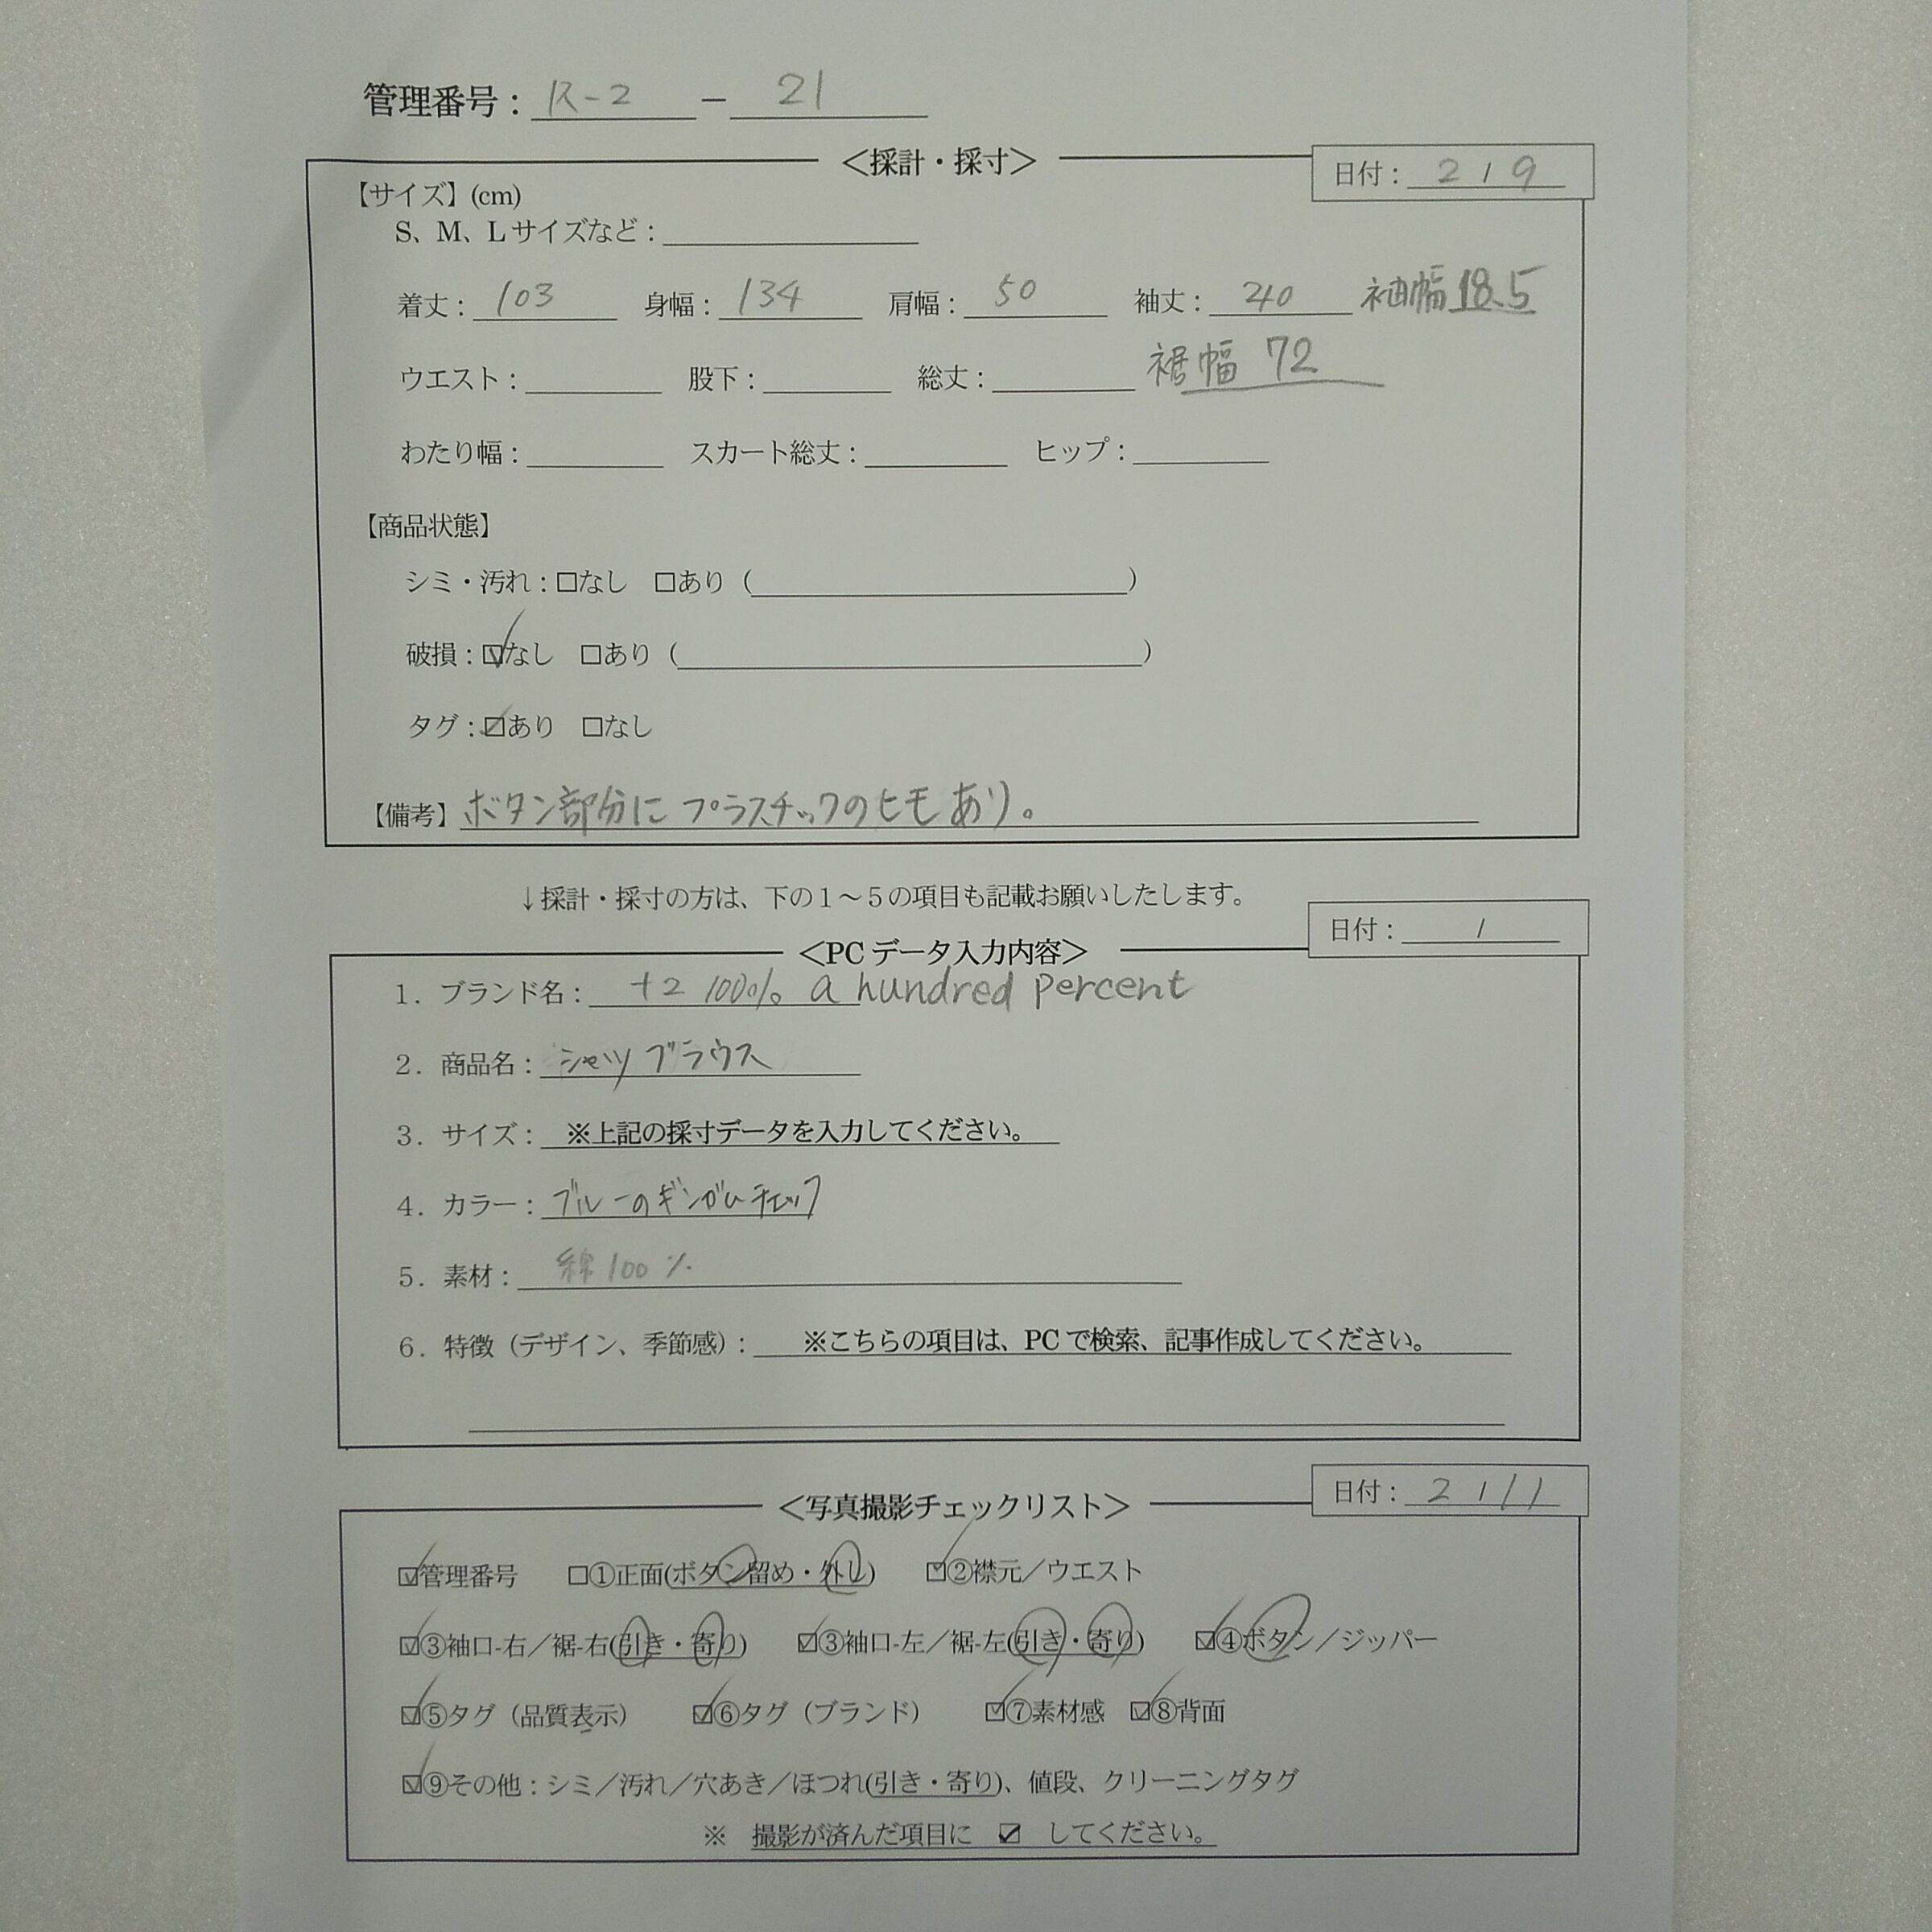 管理番号：R-2 － 21
＜採計・採寸＞ 日付：2/9
【サイズ】(cm)
S、M、Lサイズなど：
着丈：103 身幅：134 肩幅：50 袖丈：40 袖幅18.5
ウエスト： 股下： 総丈： 裾幅 72
わたり幅： スカート総丈： ヒップ：
【商品状態】
シミ・汚れ：□なし □あり（ ）
破損：☑なし □あり（ ）
タグ：☑あり □なし
【備考】ボタン部分にプラスチックのヒモあり。
↓採計・採寸の方は、下の１～５の項目も記載お願いしたします。
＜PCデータ入力内容＞ 日付： /
1．ブランド名：+2 100% a hundred percent
2．商品名：シャツブラウス
3．サイズ：※上記の採寸データを入力してください。
4．カラー：ブルーのギンガムチェック
5．素材：綿100％
6．特徴（デザイン、季節感）：※こちらの項目は、PCで検索、記事作成してください。
＜写真撮影チェックリスト＞ 日付：2/11
☑管理番号 □①正面(ボタン留め・外し) ☑②襟元／ウエスト
☑③袖口-右／裾-右(引き・寄り) ☑③袖口-左／裾-左(引き・寄り) ☑④ボタン／ジッパー
☑⑤タグ（品質表示） ☑⑥タグ（ブランド） ☑⑦素材感 ☑⑧背面
☑⑨その他：シミ／汚れ／穴あき／ほつれ(引き・寄り)、値段、クリーニングタグ
※ 撮影が済んだ項目に ☑ してください。